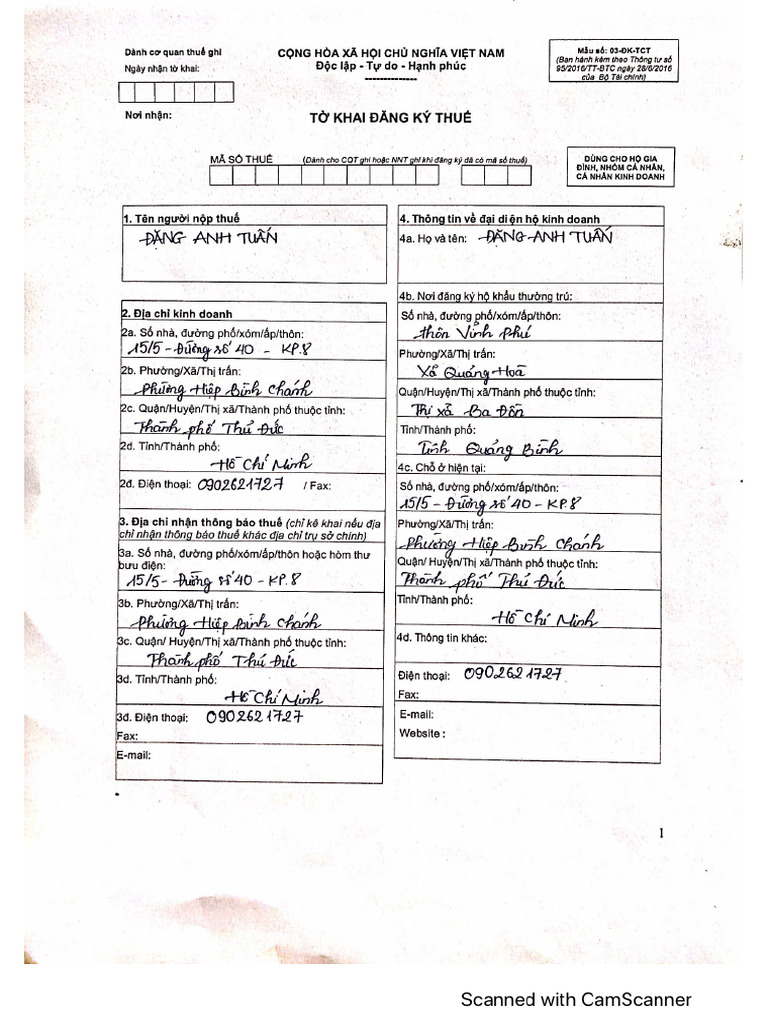 Dành cơ quan thuế ghi
Ngày nhận tờ khai:
Nơi nhận:
CỘNG HÒA XÃ HỘI CHỦ NGHĨA VIỆT NAM
Độc lập - Tự do - Hạnh phúc
--------------
Mẫu số: 03-ĐK-TCT
(Ban hành kèm theo Thông tư số
95/2016/TT-BTC ngày 28/6/2016
của Bộ Tài chính)
TỜ KHAI ĐĂNG KÝ THUẾ
MÃ SỐ THUẾ (Dành cho CQT ghi hoặc NNT ghi khi đăng ký đã có mã số thuế)
DÙNG CHO HỘ GIA
ĐÌNH, NHÓM CÁ NHÂN,
CÁ NHÂN KINH DOANH
1. Tên người nộp thuế
ĐẶNG ANH TUẤN
2. Địa chỉ kinh doanh
2a. Số nhà, đường phố/xóm/ấp/thôn:
15/5 - Đường số 40 - KP.8
2b. Phường/Xã/Thị trấn:
Phường Hiệp Bình Chánh
2c. Quận/Huyện/Thị xã/Thành phố thuộc tỉnh:
Thành phố Thủ Đức
2d. Tỉnh/Thành phố:
Hồ Chí Minh
2đ. Điện thoại: 0902621727 / Fax:
3. Địa chỉ nhận thông báo thuế (chỉ kê khai nếu địa
chỉ nhận thông báo thuế khác địa chỉ trụ sở chính)
3a. Số nhà, đường phố/xóm/ấp/thôn hoặc hòm thư
bưu điện:
15/5 - Đường số 40 - KP.8
3b. Phường/Xã/Thị trấn:
Phường Hiệp Bình Chánh
3c. Quận/ Huyện/Thị xã/Thành phố thuộc tỉnh:
Thành phố Thủ Đức
3d. Tỉnh/Thành phố:
Hồ Chí Minh
3đ. Điện thoại: 0902621727
Fax:
E-mail:
4. Thông tin về đại diện hộ kinh doanh
4a. Họ và tên: ĐẶNG ANH TUẤN
4b. Nơi đăng ký hộ khẩu thường trú:
Số nhà, đường phố/xóm/ấp/thôn:
thôn Vĩnh Phú
Phường/Xã/Thị trấn:
Xã Quảng Hoà
Quận/Huyện/Thị xã/Thành phố thuộc tỉnh:
Thị xã Ba Đồn
Tỉnh/Thành phố:
Tỉnh Quảng Bình
4c. Chỗ ở hiện tại:
Số nhà, đường phố/xóm/ấp/thôn:
15/5 - Đường số 40 - KP.8
Phường/Xã/Thị trấn:
Phường Hiệp Bình Chánh
Quận/ Huyện/Thị xã/Thành phố thuộc tỉnh:
Thành phố Thủ Đức
Tỉnh/Thành phố:
Hồ Chí Minh
4d. Thông tin khác:
Điện thoại: 0902621727
Fax:
E-mail:
Website :
1
Scanned with CamScanner